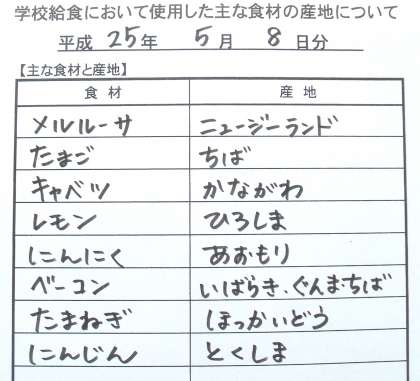 学校給食において使用した主な食材の産地について
平成 25年 5月 8日分
【主な食材と産地】
食材 産地
メルルーサ ニュージーランド
たまご ちば
キャベツ かながわ
レモン ひろしま
にんにく あおもり
ベーコン いばらき、ぐんま、ちば
たまねぎ ほっかいどう
にんじん とくしま